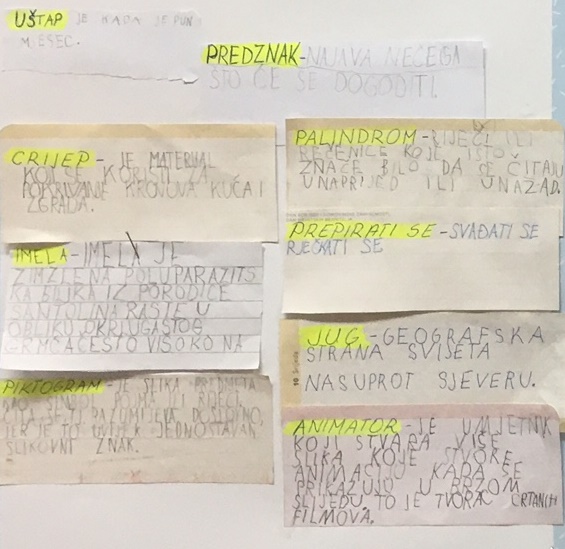 UŠTAP JE KADA JE PUN
MJESEC.
PREDZNAK-NAJAVA NEČEGA
ŠTO ĆE SE DOGODITI.
CRIJEP - JE MATERIJAL
KOJI SE KORISTI ZA
POKRIVANJE KROVOVA KUĆA I
ZGRADA.
PALINDROM-RIJEČI ILI
REČENICE KOJE ISTO
ZNAČE BILO DA SE ČITAJU
UNAPRIJED ILI UNAZAD.
IMELA-IMELA JE
ZIMZLENA POLUPARAZITS
KA BILJKA IZ PORODICE
RASTE U
OBLIKU OKRLUGASTOG
GRMČAČESTO VISOKO NA
PREPIRATI SE -SVAĐATI SE
RJEČKATI SE
JUG-GEOGRAFSKA
STRANA SVIJETA
NASUPROT SJEVERU.
PIKTOGRAM-JE SLIKA PREDMETA
RAZUMIJEVA DOSLOVNO,
JER JE TO UVIJEK JEDNOSTAVAN
SLIKOVNI ZNAK.
ANIMATOR-JE UMJETNIK
KOJI STVARA VIŠE
SLIKA KOJE STVORE
ANIMACIJU KADA SE
PRIKAZUJU U BRZOM
SLIJEDU. TO JE TVORAC CRTANIH
FILMOVA.